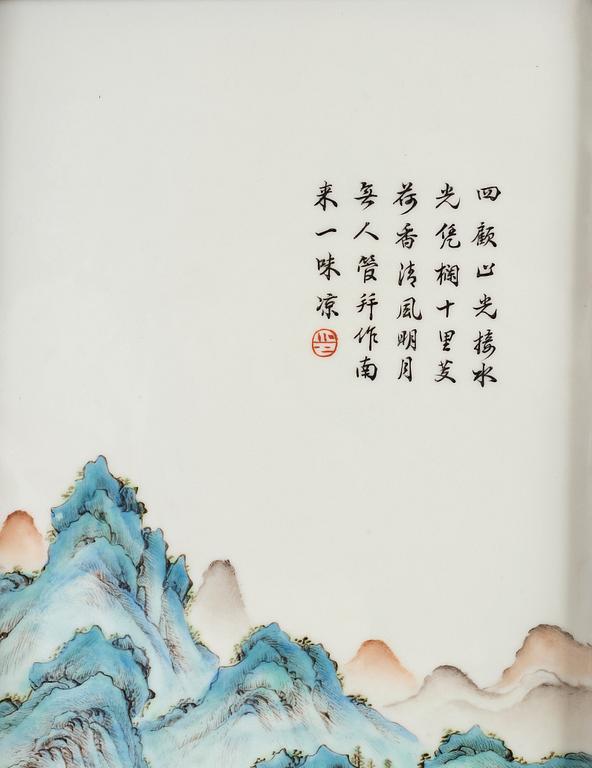 四顧山光接水
光凭欄十里芰
荷香清風明月
無人管并作南
来一味凉